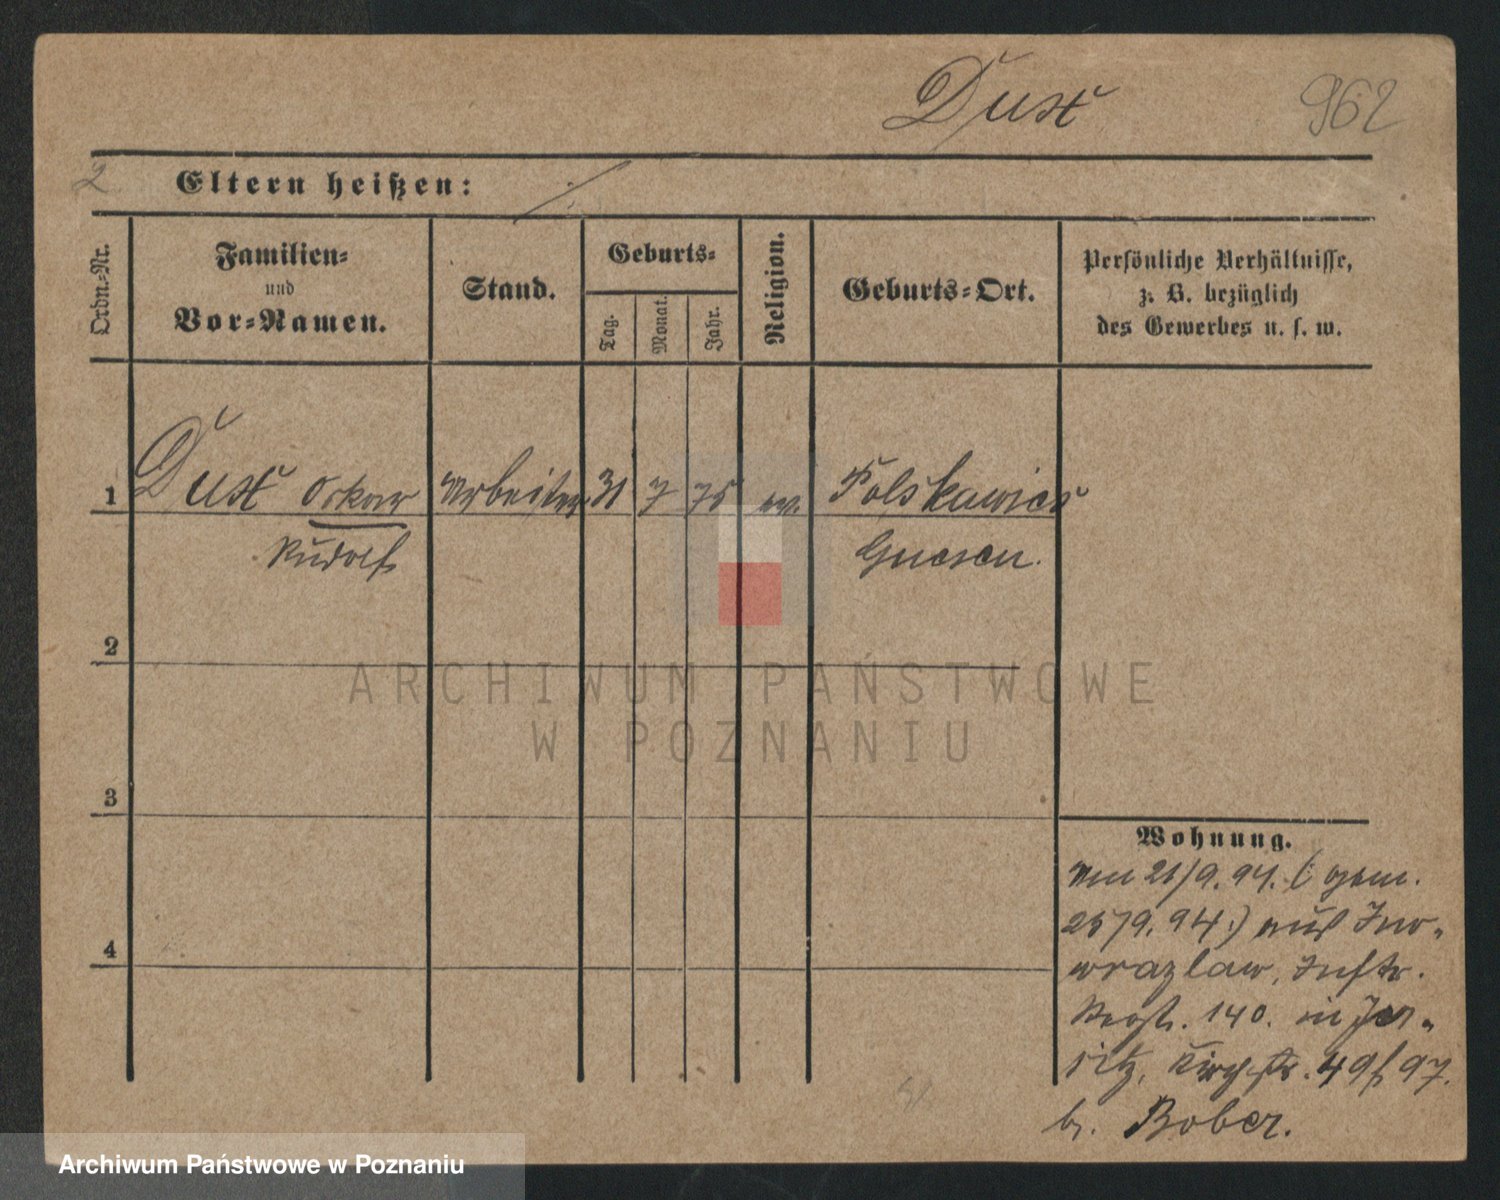 Dust 962
2 Eltern heißen: ./.
Ordn.-Nr.
Familien-
und
Vor-Namen.
Stand.
Geburts-
Tag.
Monat.
Jahr.
Religion.
Geburts-Ort.
Persönliche Verhältnisse,
z. B. bezüglich
des Gewerbes u. s. w.
1 Dust Oskar Arbeiter 31 7 75 ev. Polskawies
Rudolf Gnesen.
2
3
4
Wohnung.
Am 21/9. 94. (: gem.
25/9. 94:) aus Ino-
wrazlaw, Inftr.
Regt. 140. in Jer-
sitz, Kirchstr. 49/97.
b. Bober.
ARCHIWUM PAŃSTWOWE
W POZNANIU
Archiwum Państwowe w Poznaniu